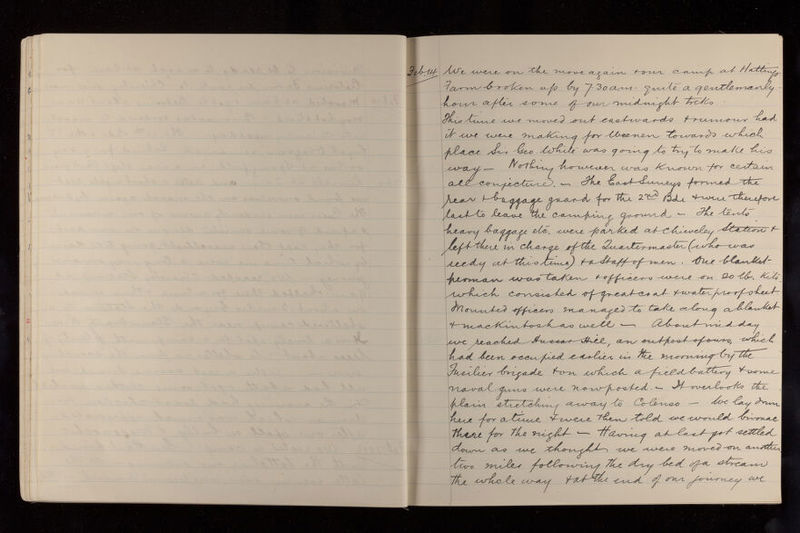 Feb. 14 We were on the move again & our camp at Hattings
Farm broken up by 7.30 a.m. quite a gentlemanly
hour after some of our midnight treks.
This time we moved out eastwards & rumour had
it we were making for Weenen towards which
place Sir Geo. White was going to try to make his
way — Nothing however was known for certain
all conjecture. — The East Surreys formed the
rear & baggage guard for the 2nd Bde & were therefore
last to leave the camping ground — The tents
heavy baggage etc. were parked at Chieveley Station &
left there in charge of the Quartermaster (who was
seedy at this time) & a staff of men. One blanket
per man was taken & officers were on 20 lb. kits
which consisted of great coat & waterproof sheet
Mounted officers managed to take along a blanket
& mackintosh as well — About mid day
we reached Hussar Hill, an outpost of ours, which
had been occupied earlier in the morning by the
Fusilier brigade & on which a field battery & some
naval guns were now posted. — It overlooks the
plain stretching away to Colenso — We lay down
here for a time & were then told we would bivouac
there for the night — Having at last got settled
down as we thought we were moved on another
two miles following the dry bed of a stream
the whole way & at the end of our journey we